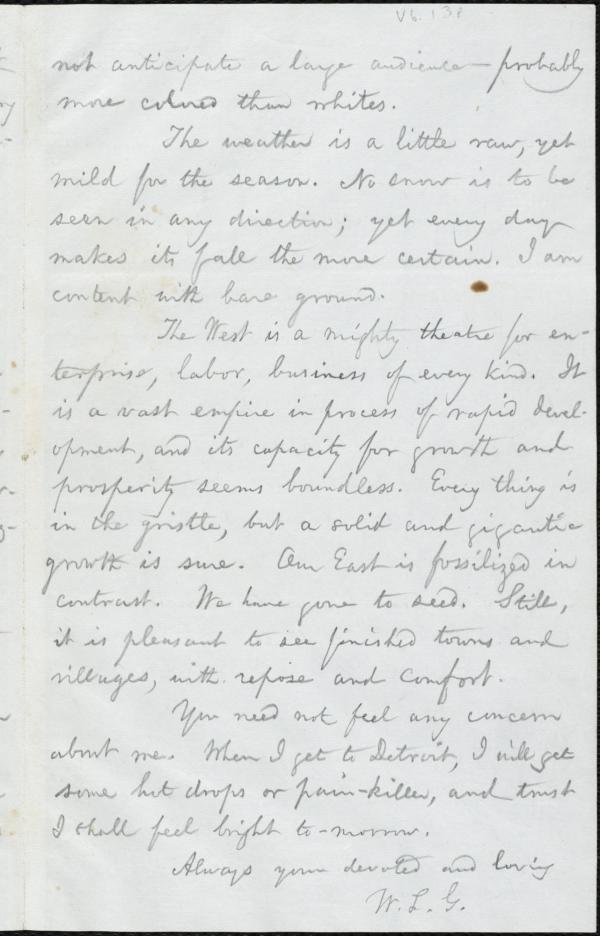 V6. 138
not anticipate a large audience—probably
more colored than whites.
The weather is a little raw, yet
mild for the season. No snow is to be
seen in any direction; yet every day
makes its fall the more certain. I am
content with bare ground.
The West is a mighty theatre for en-
terprise, labor, business of every kind. It
is a vast empire in process of rapid devel-
opment, and its capacity for growth and
prosperity seems boundless. Every thing is
in the gristle, but a solid and gigantic
growth is sure. Our East is fossilized in
contrast. We have gone to seed. Still,
it is pleasant to see finished towns and
villages, with repose and comfort.
You need not feel any concern
about me. When I get to Detroit, I will get
some hot drops or pain-killer, and trust
I shall feel bright to-morrow.
Always your devoted and loving
W. L. G.